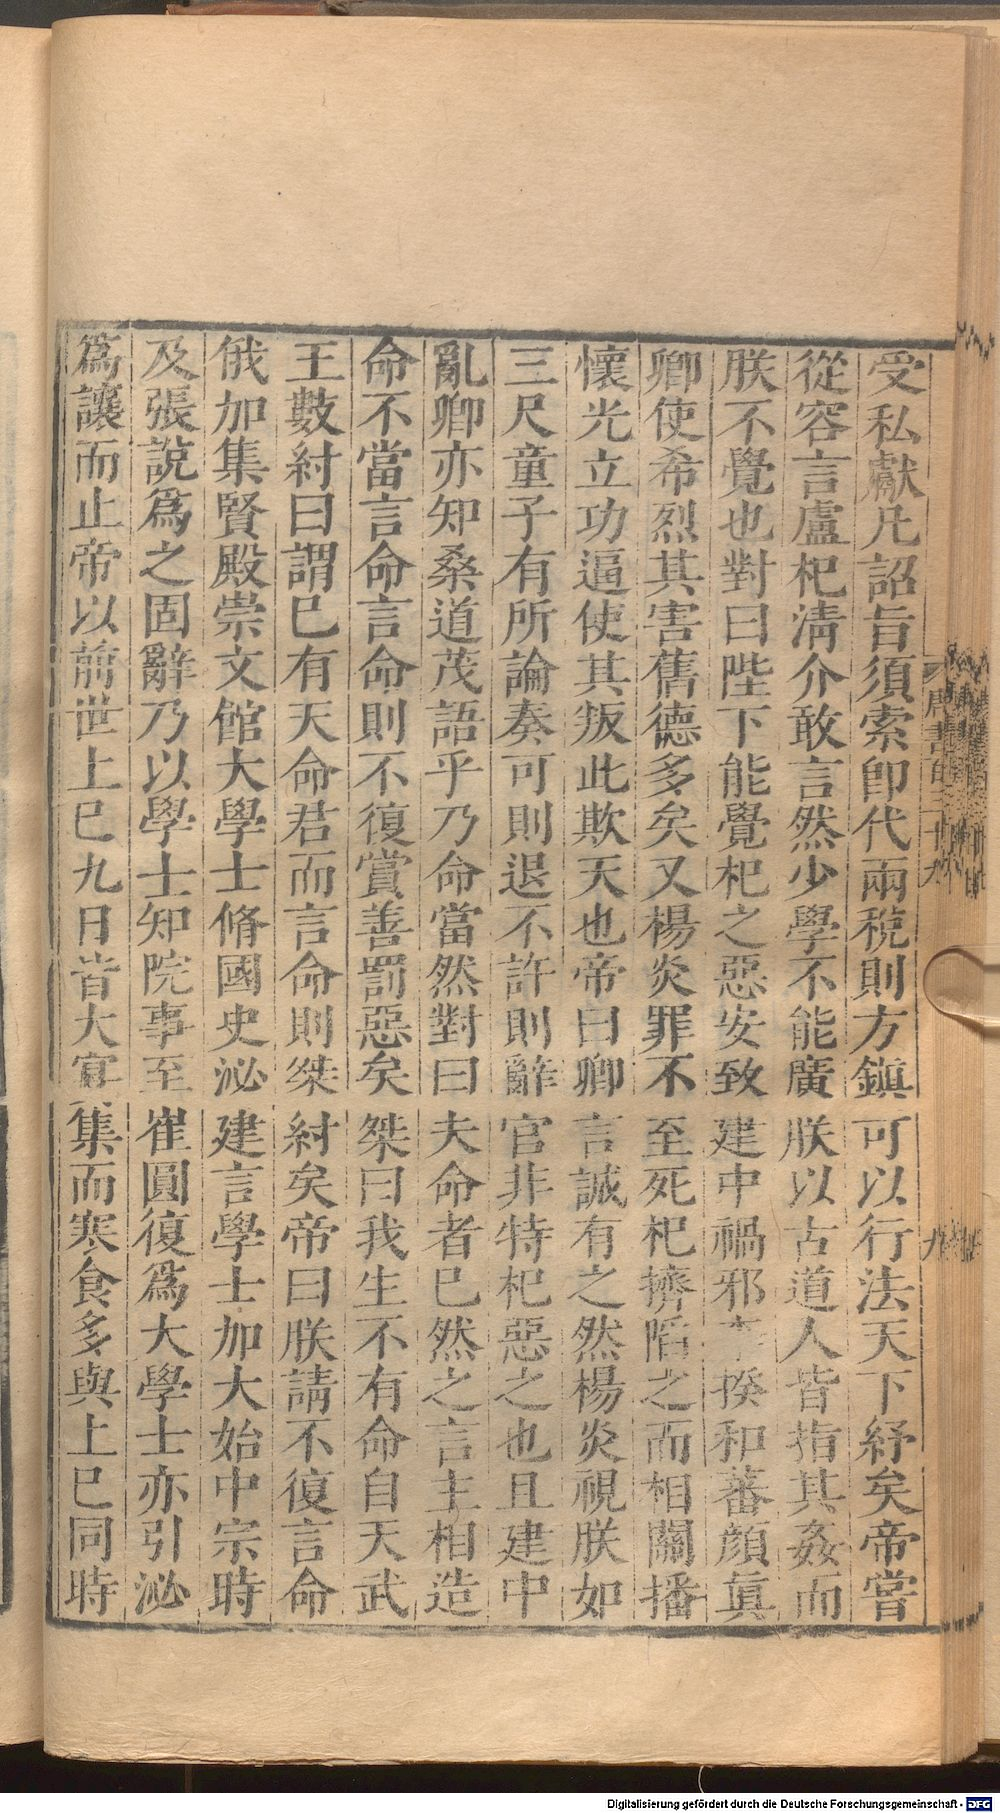 受私獻凡詔旨須索卽代兩稅則方鎮可以行法天下紓矣帝嘗
從容言盧杞淸介敢言然少學不能廣朕以古道人皆指其姦而
朕不覺也對曰陛下能覺杞之惡安致建中禍邪李揆和蕃顔眞
卿使希烈其害舊德多矣又楊炎罪不至死杞擠陷之而相關播
懷光立功逼使其叛此欺天也帝曰卿言誠有之然楊炎視朕如
三尺童子有所論奏可則退不許則辭官非特杞惡之也且建中
亂卿亦知桑道茂語乎乃命當然對曰夫命者已然之言主相造
命不當言命言命則不復賞善罰惡矣桀曰我生不有命自天武
王數紂曰謂已有天命君而言命則桀紂矣帝曰朕請不復言命
俄加集賢殿崇文館大學士脩國史泌建言學士加大始中宗時
及張說爲之固辭乃以學士知院事至崔圓復爲大學士亦引泌
爲讓而止帝以前世上巳九日皆大宴集而寒食多與上巳同時
九
Digitalisierung gefördert durch die Deutsche Forschungsgemeinschaft - DFG